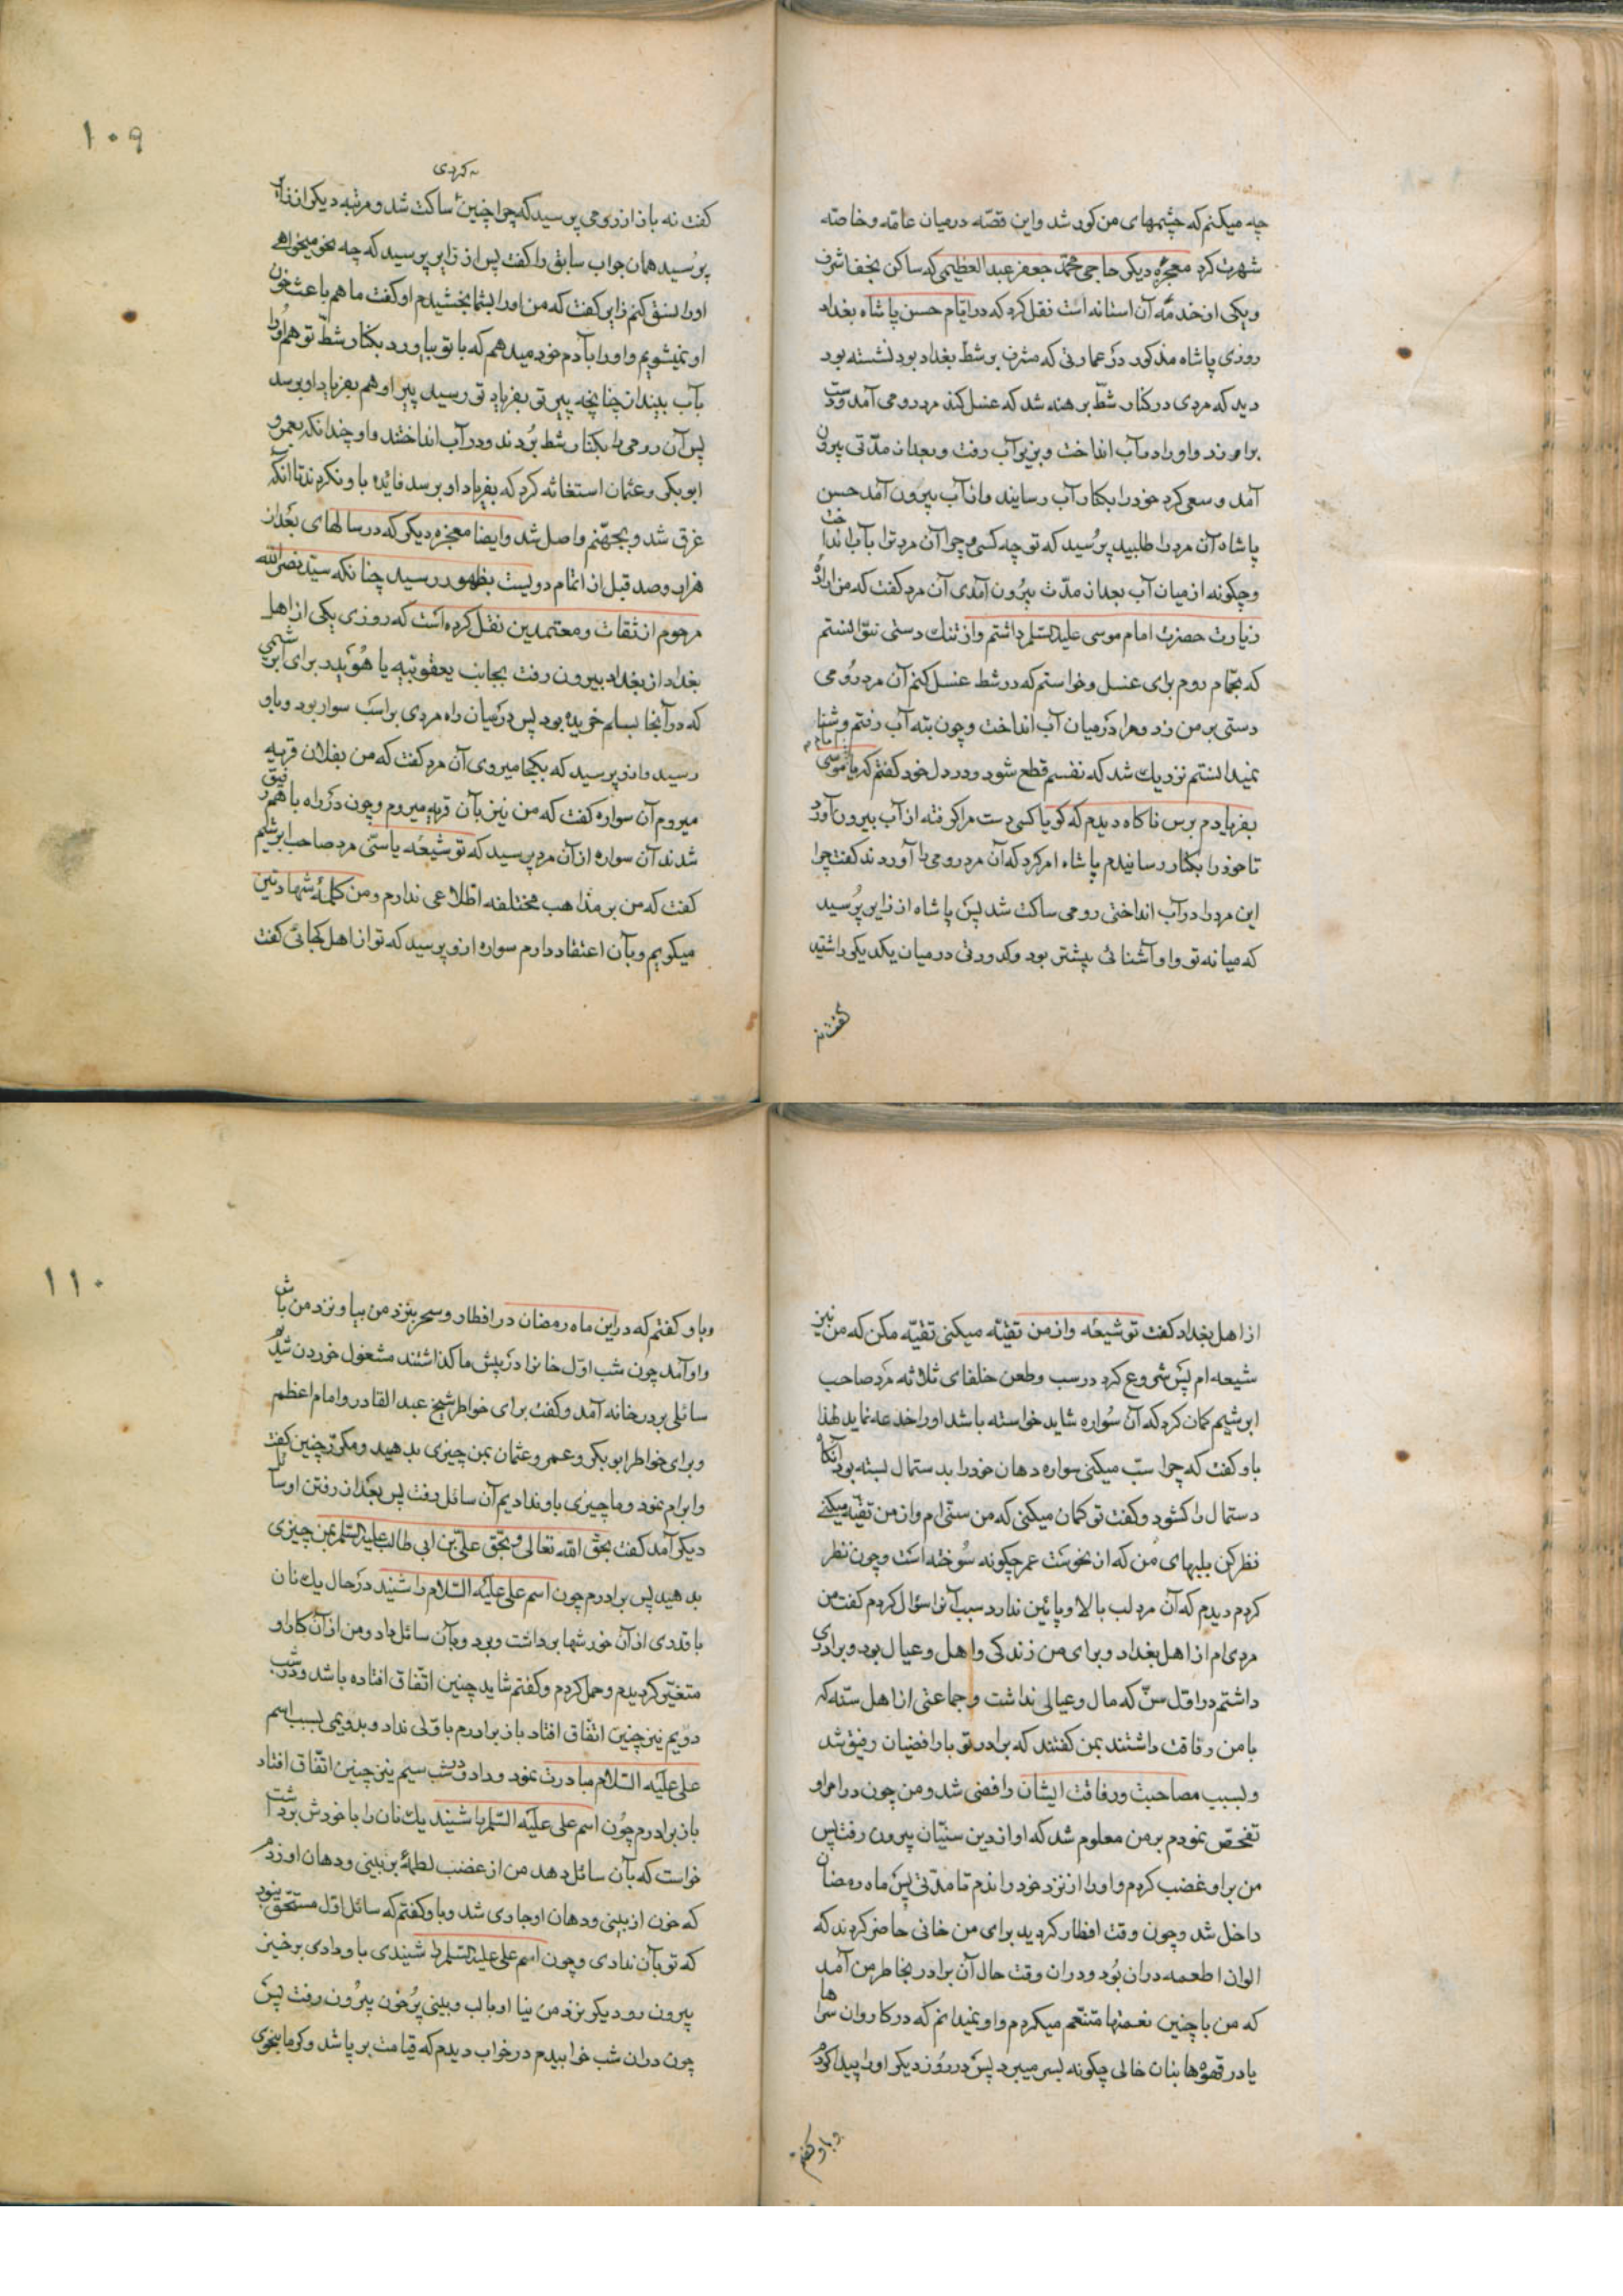 چه میکنم که چشمهای من کور شد و این قصّه در میان عامّه و خاصّه
شهرت کرد معجزه دیگر حاجی محمّد جعفر عبدالعظیمی که ساکن نجف اشرف
و یکی از خدمّه آن استانه است نقل کرد که در ایّام حسن پاشاه بغداد
روزی پاشاه مذکور در عمارتی که مشرف بر شطّ بغداد بود نشسته بود
دید که مردی در کنار شطّ برهنه شد که غسل کند مرد رومی آمد و دست
بر او زد و او را در آب انداخت و بزیر آب رفت و بعد از مدّتی بیرون
آمد و سعی کرد خود را بکنار آب رسانید و از آب بیرون آمد حسن
پاشاه آن مرد را طلبید پرسید که تو چه کسی و چرا آن مرد ترا بآب انداخت
و چگونه از میان آب بعد از مدّت بیرون آمدی آن مرد گفت که من اراده
زیارت حضرت امام موسی علیه السّلم داشتم و از تنک دستی نتوانستم
که بحمّام روم برای غسل و خواستم که در شط غسل کنم آن مرد رومی
دستی بر من زد و مرا در میان آب انداخت و چون بته آب رفتم و شنا
نمیدانستم نزدیک شد که نفسم قطع شود و در دل خود گفتم که یا امام موسی
بفریادم برس ناگاه دیدم که گویا کسی دست مرا گرفته از آب بیرون آورد
تا خود را بکنار رسانیدم پاشاه امر کرد که آن مرد رومی را آوردند گفت چرا
این مرد را در آب انداختی رومی ساکت شد پس پاشاه از زایر پُرسید
که میانه تو و او آشنائی پیشتر بود و کدورتی در میان یکدیکر داشتید
گفت نه
۱۰۹
کردی
گفت نه باز از رومی پرسید که چرا چنین ساکت شد و مرتبه دیگر از زایر
پرسید همان جواب سابق را گفت پس از زایر پرسید که چه نحو میخواهی
او را نسق کنم زایر گفت که من او را بشما بخشیدم او گفت ما هم باعث خون
او نمیشویم و او را بآدم خود میدهم که با تو بیاورد بکنار شطّ تو هم او را
بآب بینداز چنانچه پیر تو بفریاد تو رسید پیر او هم بفریاد او برسد
پس آن رومی را بکنار شط بردند و در آب انداختند و او چندانکه بعمر و
ابوبکر و عثمان استغاثه کرد که بفریاد او برسد فائده باو نکردند تا آنکه
غرق شد و بجهنّم واصل شد و ایضا معجزه دیگر که در سالهای بعد از
هزار و صد قبل از اتمام دویست بظهور رسید چنانکه سیّد نصرالله
مرحوم از ثقات و معتمدین نقل کرده است که روزی یکی از اهل
بغداد از بغداد بیرون رفت بجانب یعقوبیّه یا هُوَیدر برای ابریشمی
که در آنجا بسلم خریده بود پس در میان راه مردی بر اسب سوار بود و باو
رسید و از او پرسید که بکجا میروی آن مرد گفت که من بفلان قریه
میروم آن سواره گفت که من نیز بآن قریه میروم و چون در راه با هم رفیق
شدند آن سواره از آن مرد پرسید که تو شیعه یا سنّی مرد صاحب ابریشم
گفت که من بر مذاهب مختلفه اطلاعی ندارم و من کلمهٔ شهادتین
میگویم و بآن اعتقاد دارم سواره از او پرسید که تو از اهل کجائی گفت
از اهل بغداد گفت تو شیعه و از من تقیّه میکنی تقیّه مکن که من نیز
شیعه ام پس شروع کرد در سب و طعن خلفای ثلاثه مرد صاحب
ابریشم گمان کرد که آن سواره شاید خواسته باشد او را خدعه نماید لهذا
باو گفت که چرا سبّ میکنی سواره دهان خود را بدستمال بسته بود آنگاه
دستمال را کشود و گفت تو گمان میکنی که من سنّی ام و از من تقیّه میکنی
نظر کن بلبهای من که از نحوست عمر چگونه سوخته است و چون نظر
کردم دیدم که آن مرد لب بالا و پائین ندارد سبب آنرا سؤال کردم گفت من
مردی ام از اهل بغداد و برای من زندگی و اهل و عیال بود و برادری
داشتم در اوّل سنّ که مال و عیالی نداشت و جماعتی از اهل سنّه که
با من رفاقت داشتند بمن گفتند که برادر تو با رافضیان رفیق شد
و بسبب مصاحبت و رفاقت ایشان رافضی شد و من چون در امر او
تفحّص نمودم بر من معلوم شد که او از دین سنّیان بیرون رفت پس
من بر او غضب کردم و او را از نزد خود راندم تا مدّتی پس ماه رمضان
داخل شد و چون وقت افطار گردید برای من خانی حاضر کردند که
الوان اطعمه در ان بُود و در ان وقت حال آن برادر بخاطر من آمد
که من با چنین نعمتها متنعّم میگردم و او نمیدانم که در کاروان سراها
یا در قهوه ها بنان خالی چگونه بسر میبرد پس در روز دیگر او را پیدا کردم
و باو گفتم
۱۱۰
و باو گفتم که در این ماه رمضان در افطار و سحر بنزد من بیا و نزد من باش
و او آمد چون شب اوّل خانرا در پیش ما گذاشتند مشغول خوردن شدیم
سائلی بر در خانه آمد و گفت برای خاطر شیخ عبد القادر و امام اعظم
و برای خاطر ابوبکر و عمر و عثمان بمن چیزی بدهید و مکرّر چنین گفت
و ابرام نمود و ما چیزی باو ندادیم آن سائل رفت پس بعد از رفتن او سائل
دیگر آمد گفت بحق الله تعالی و بحق علیّ بن ابی طالب علیه السّلم بمن چیزی
بدهید پس برادرم چون اسم علی علیه السّلام را شنید در حال یک نان
با قدری از آن خورشها برداشت و برد و بآن سائل داد و من از آن کار او
متغیّر گردیدم و حمل کردم و گفتم شاید چنین اتّفاق افتاده باشد و در شب
دویم نیز چنین اتّفاق افتاد باز برادرم باوّلی نداد و بدویمی بسبب اسم
علی علیه السّلام مبادرت نمود و داد و در شب سیم نیز چنین اتّفاق افتاد
باز برادرم چون اسم علی علیه السّلم را شنید یک نان را با خورش برداشت
خواست که بآن سائل دهد من از غضب لطمهٔ بر بینی و دهان او زدم
که خون از بینی و دهان او جاری شد و باو گفتم که سائل اوّل مستحّق نبود
که تو بآن ندادی و چون اسم علی علیه السّلم را شنیدی باو دادی برخیز
بیرون رو دیگر بنزد من نیا او با لب و بینی پرُ خون بیرون رفت پس
چون در ان شب خوابیدم در خواب دیدم که قیامت بر پا شد و کرما بنحوی